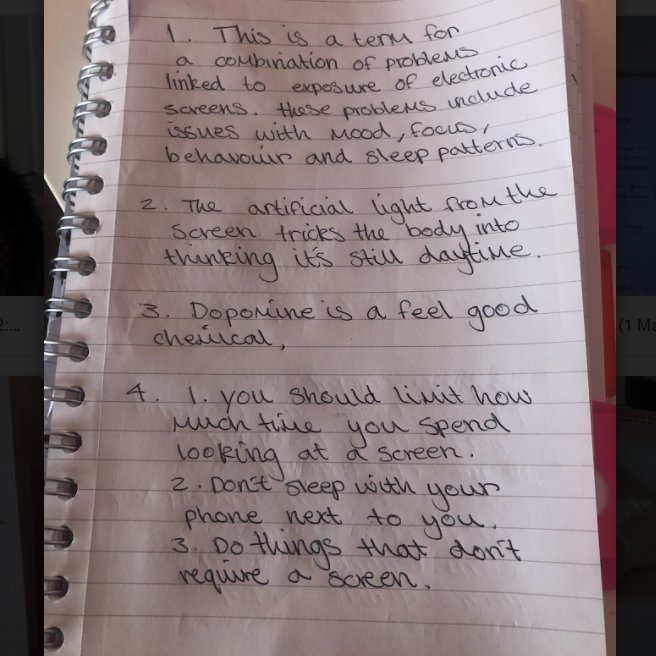 1. This is a term for
a combination of problems
linked to exposure of electronic
screens. these problems include
issues with mood, focus,
behavouir and sleep patterns.
2. The artificial light from the
screen tricks the body into
thinking it's still daytime.
3. Dopomine is a feel good
chemical,
4. 1. you should limit how
much time you spend
looking at a screen.
2. Don't sleep with your
phone next to you.
3. Do things that don't
require a screen.
2:...
(1 Ma